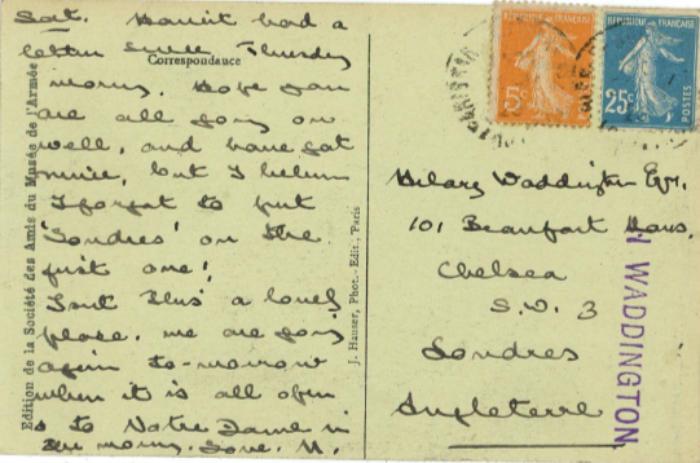 Sat. Haven't had a
letter since Thursday
Correspondance
morng. Hope you
are all going on
well, and have got
mine, but I believe
I forgot to put
'Londres' on the
first one!
Isn't this a lovely
place. We are going
again to-morrow
when it is all open
& to Notre Dame in
the morng. Love. M.
Edition de la Société des Amis du Musée de l'Armée
J. Hauser, Phot.-Edit., Paris
REPUBLIQUE FRANÇAISE
5c
REPUBLIQUE FRANÇAISE
25c
POSTES
Hilary Waddington Esqr.
101 Beaufort Mans.
Chelsea
S.W. 3
Londres
Angleterre
WADDINGTON